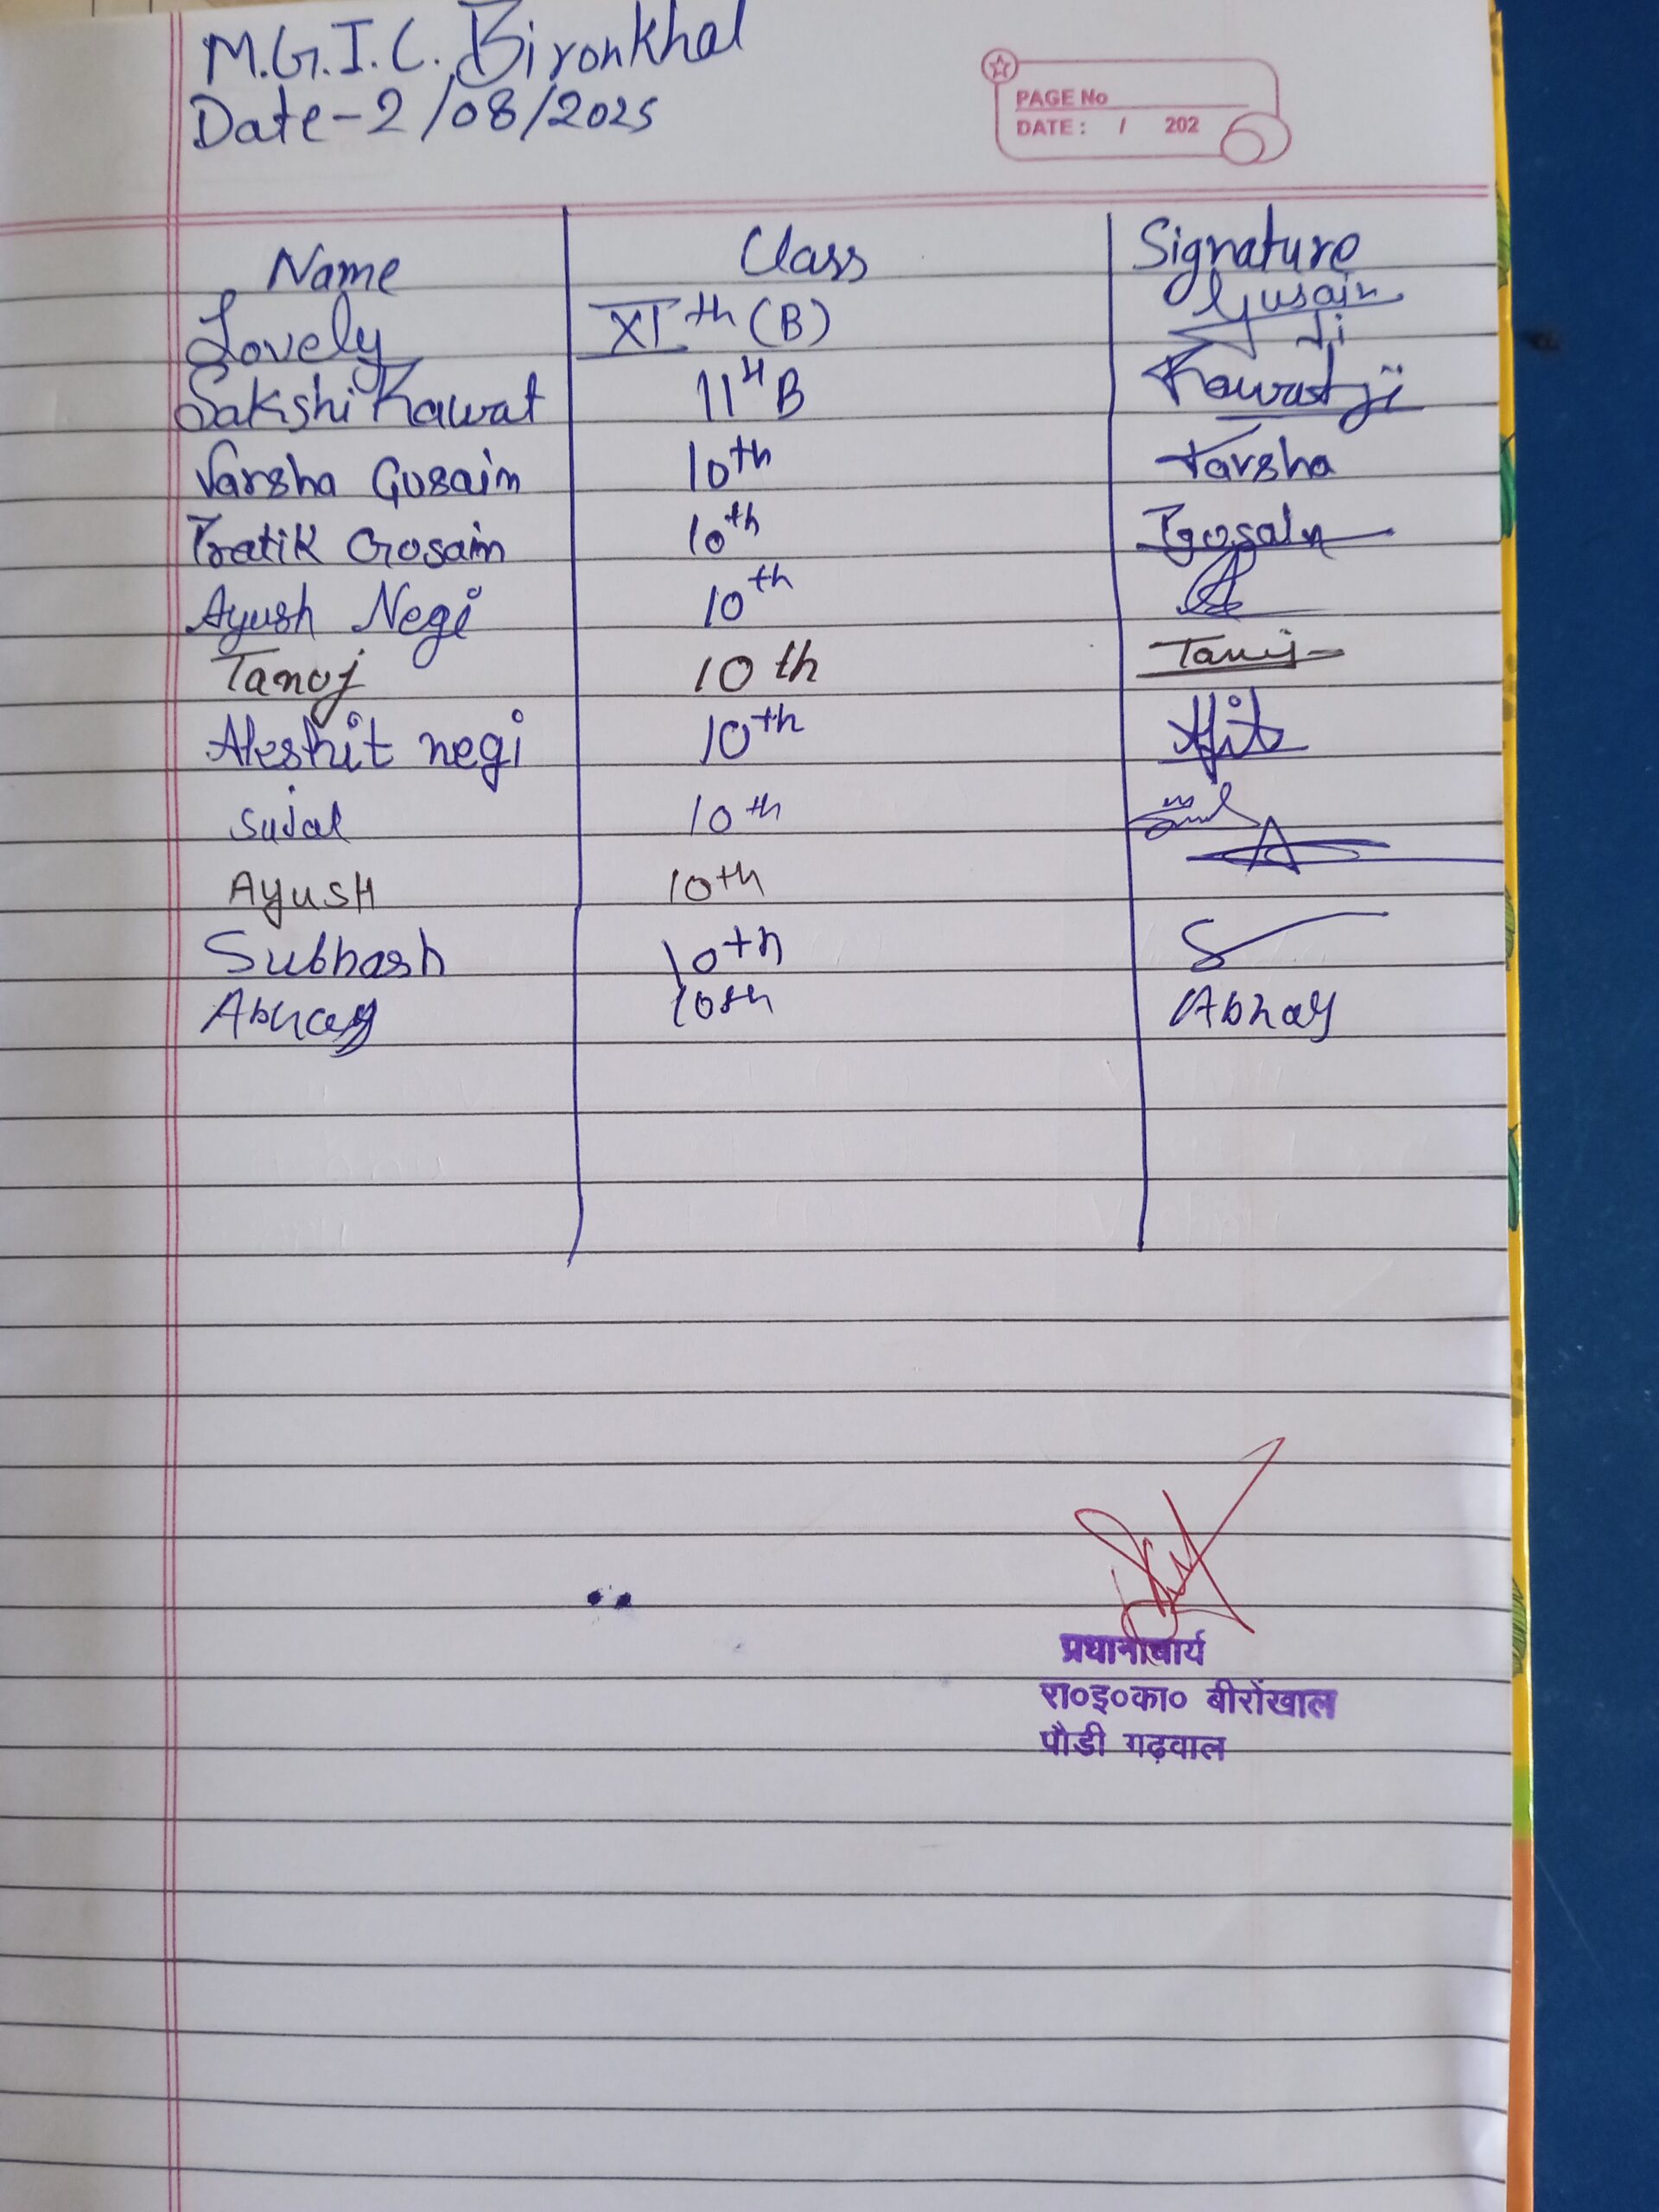 M.G.I.C. Bironkhal
Date-2/08/2025
PAGE No
DATE: / 202
Name Class Signature
Lovely XIth (B) Gusain Ji
Sakshi Rawat 11th B Rawat ji
Varsha Gusain 10th Varsha
Pratik Gosain 10th Pgosain
Ayush Negi 10th
Tanoj 10th Tanoj
Akshit negi 10th
Sujal 10th
AyusH 10th
Subhash 10th S
Abhay 10th Abhay
प्रधानाचार्य
रा०इ०का० बीरोंखाल
पौडी गढ़वाल